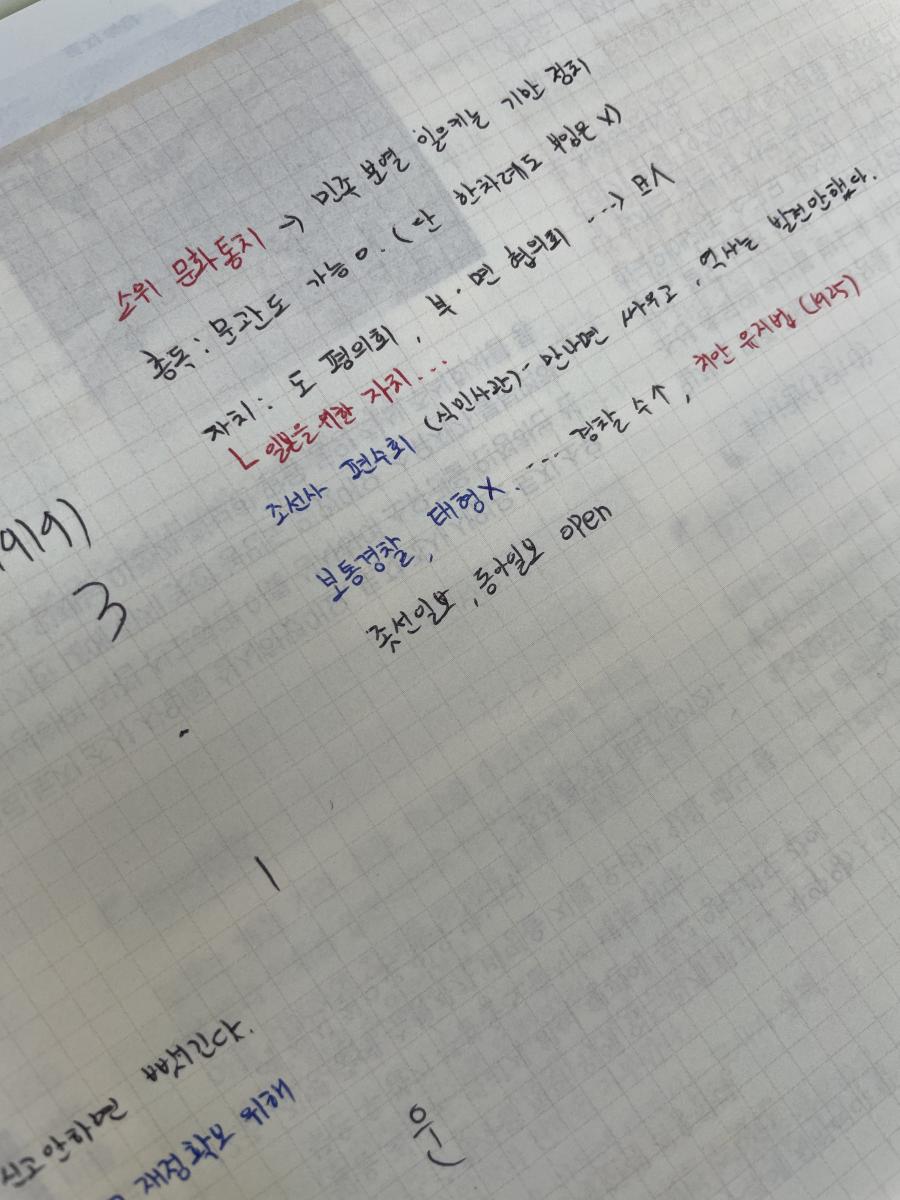 소위 문화통치 → 민족 분열 일으키는 기만 정치
총독: 문관도 가능 O. (단 한차례도 부임은 X)
자치: 도 평의회, 부·면 협의회 ...→ 표시
ㄴ 일본을 위한 자치...
조선사 편수회 (식민사관)- 만나면 싸우고, 역사는 발전안했다.
보통경찰, 태형X. ... 경찰 수↑, 치안 유지법 (1925)
조선일보, 동아일보 open
919)
3
1
신고안하면 뺏긴다.
재정확보 위해
은